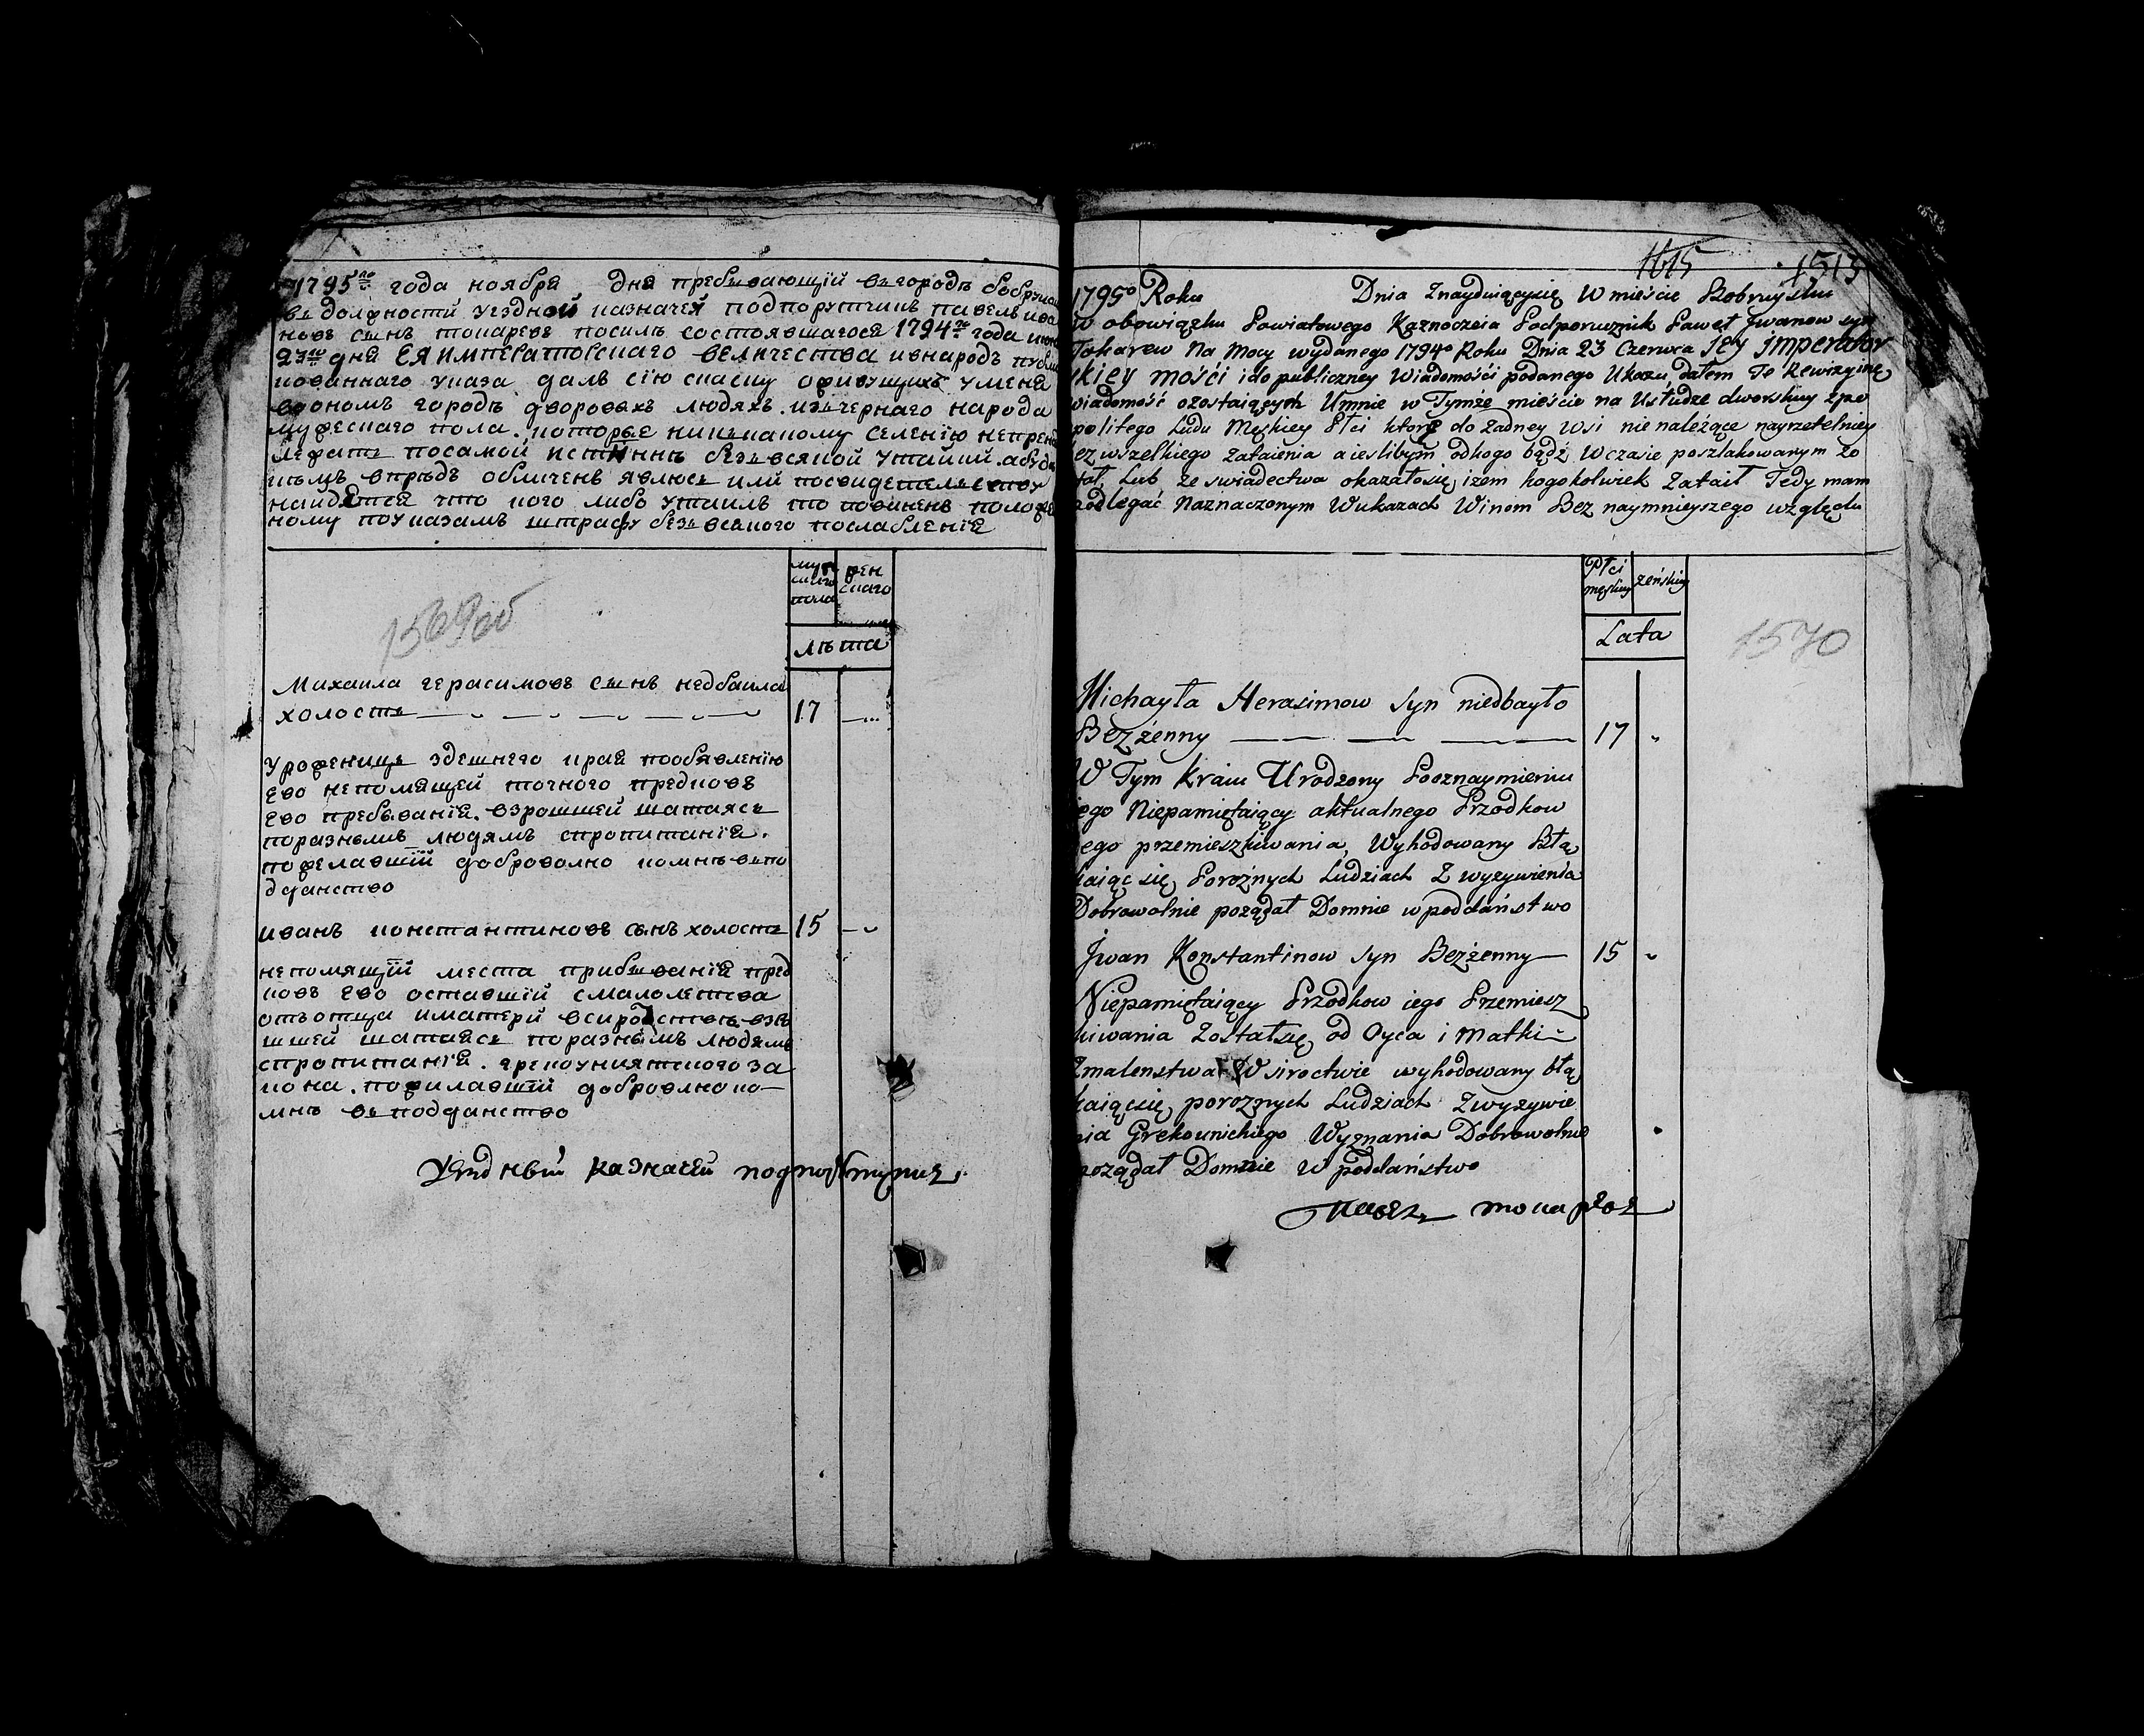 1795го года ноября дня пребывающій въ городѣ бобруйс
въ должности уездной казначей подпорутчикъ павелъ ива
новъ сынъ токаревъ по силѣ состоявшагося 1794го года июня
23го дня ЕЯ ИМПЕРАТОРСКАГО ВЕЛИЧЕСТВА ивнародъ публи
кованнаго указа далъ сїю скаску оживущихъ у меня
воономъ городѣ дворовыхъ людяхъ изъ чернаго народа
мужескаго пола, которые никъ какому селенїю непрена
лежатъ посамой истиннѣ безъ всякой утайки. абуде
кѣмъ впредь обличенъ явлюсь или посвидетельству
найдется что кого либо утаилъ то повиненъ положе
ному поуказамъ штрафу безъ всякого послабленїя
муже
скаго
пола
жен
скаго
лѣта
1569об
Михаила герасимовъ сынъ недбаила
холостъ 17
Уроженицъ здешнего края пообявленїю
Его непомнящей точного предковъ
Его пребыванїя. взрошшей шатаясь
поразнымъ людямъ спропитанїя.
пожелавшїй доброволно комнѣ въпо
дданство
иванъ константиновъ сынъ холостъ 15
непомнящїй места прибыванїя пред
ковъ Его оставшїй смалолетства
отъ отца иматери всиротствѣ взъ
шшей шатаясь поразнымъ людямъ
спропитанїя. грекоуниятского за
кона. пожилавшїй доброволно ко-
мнѣ въ подданство
Уездный казначей подпорутчик
1615 1513
1795o Roku Dnia Znayduiącysię W mieście Bobruysku
w obowiązku Powiatowego Kaznoczeia Podporucznik Paweł Jwanow syn
Tokarew Na Mocy wydanego 1794o Roku Dnia 23 Czerwca JEY IMPERATOR
skiey mości i do publiczney Wiadomości podanego Ukazu, dałem Te Rewizyiną
wiadomość ozostaiących Umnie w Tymże mieście na Usłudze dworskiey zpo
politego Ludu Męskiey Płci ktore do żadney Wsi nie należące nayrzetelniey
bez wszelkiego Zataienia a ieslibym odkogo bądź Wczasie poszlakowanym zo
stał, Lub ze swiadectwa okazałosię iżem kogokolwiek Zataił Tedy mam
podlegać Naznaczonym Wukazach Winom Bez naymnieyszego względu
Płci
męskiey
żeńskiey
Lata
1570
Michayła Herasimow syn niedbayło
Bezżenny 17
W Tym kraiu Urodzony Pooznaymieniu
iego Niepamiętaiący aktualnego Przodkow
iego przemieszkiwania, Wyhodowany Błą
kaiąc się Porożnych Ludziach Z wyzywienia
Dobrowolnie pożądał Domnie wpoddaństwo
Jwan Konstantinow syn Bezżenny 15
Niepamiętaiący Przodkow iego Przemiesz
kiwania Zostałsię od Oyca i Matki
Zmalenstwa Wsiroctwie wyhodowany błą
kaiącsię porożnych Ludziach Zwyzywie
nia Grekounickiego Wyznania Dobrowolnie
pożądał Domnie W poddaństwo
Павелъ токаревъ